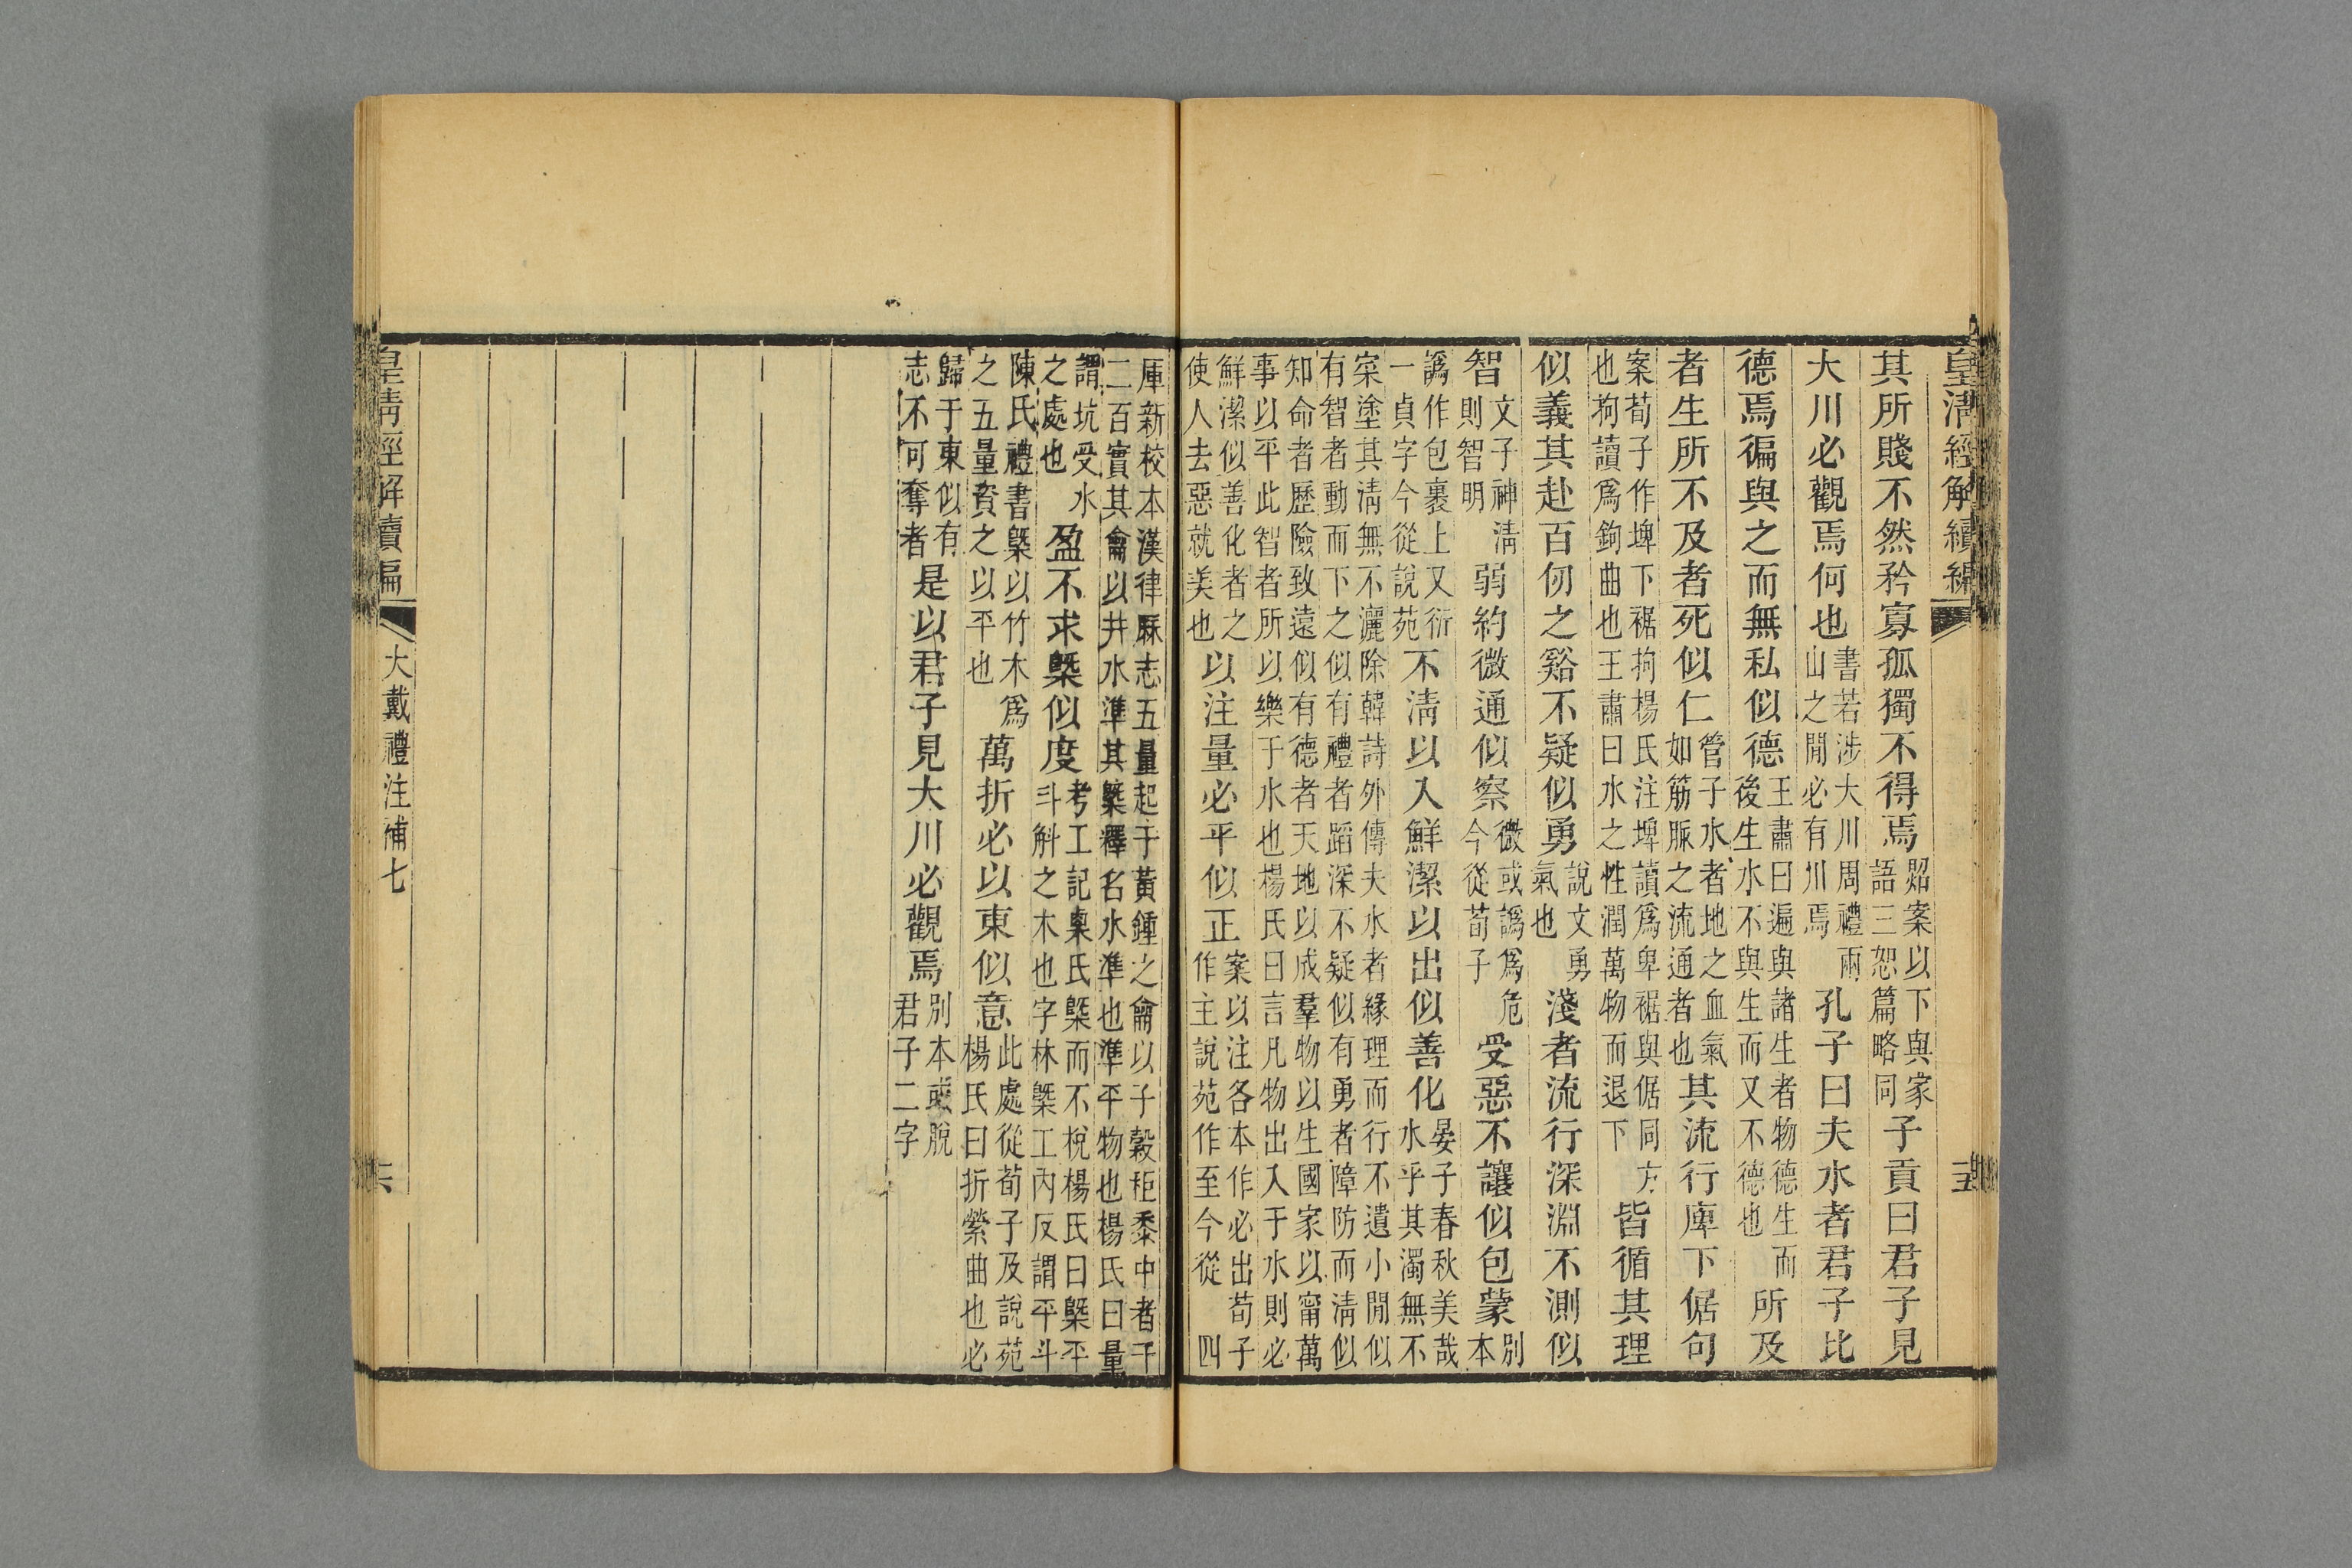 皇清經解續編
五
其所賤不然矜寡孤獨不得焉煚案以下與家語三恕篇略同子貢曰君子見
大川必觀焉何也書若涉大川周禮兩山之閒必有川焉孔子曰夫水者君子比
德焉徧與之而無私似德王肅曰遍與諸生者物德生而後生水不與生而又不德也所及
者生所不及者死似仁管子水者地之血氣如筋脈之流通者也其流行庳下倨句
案荀子作埤下裾拘楊氏注埤讀爲卑裾與倨同方也拘讀爲鉤曲也王肅曰水之性潤萬物而退下皆循其理
似義其赴百仞之谿不疑似勇說文勇氣也淺者流行深淵不測似
智文子神淸則智明弱約微通似察微或譌爲危今從荀子受惡不讓似包蒙別本
譌作包裹上又衍一貞字今從說苑不淸以入鮮潔以出似善化晏子春秋美哉水乎其濁無不
寀塗其淸無不灑除韓詩外傳夫水者緣理而行不遺小閒似有智者動而下之似有禮者蹈深不疑似有勇者障防而淸似
知命者歷險致遠似有德者天地以成羣物以生國家以甯萬事以平此智者所以樂于水也楊氏曰言凡物出入于水則必
鮮潔似善化者之使人去惡就美也以注量必平似正案以注各本作必出荀子作主說苑作至今從四
厙新校本漢律厤志五量起于黃鍾之龠以子穀秬黍中者千二百實其龠以井水準其槩釋名水準也準平物也楊氏曰量
謂坑受水之處也盈不求槩似度考工記㮚氏槩而不稅楊氏曰槩平斗斛之木也字林槩工內反謂平斗
陳氏禮書槩以竹木爲之五量資之以平也萬折必以東似意此處從荀子及說苑楊氏曰折縈曲也必
歸于東似有志不可奪者是以君子見大川必觀焉別本或脫君子二字
皇清經解續編
大戴禮注補七
六